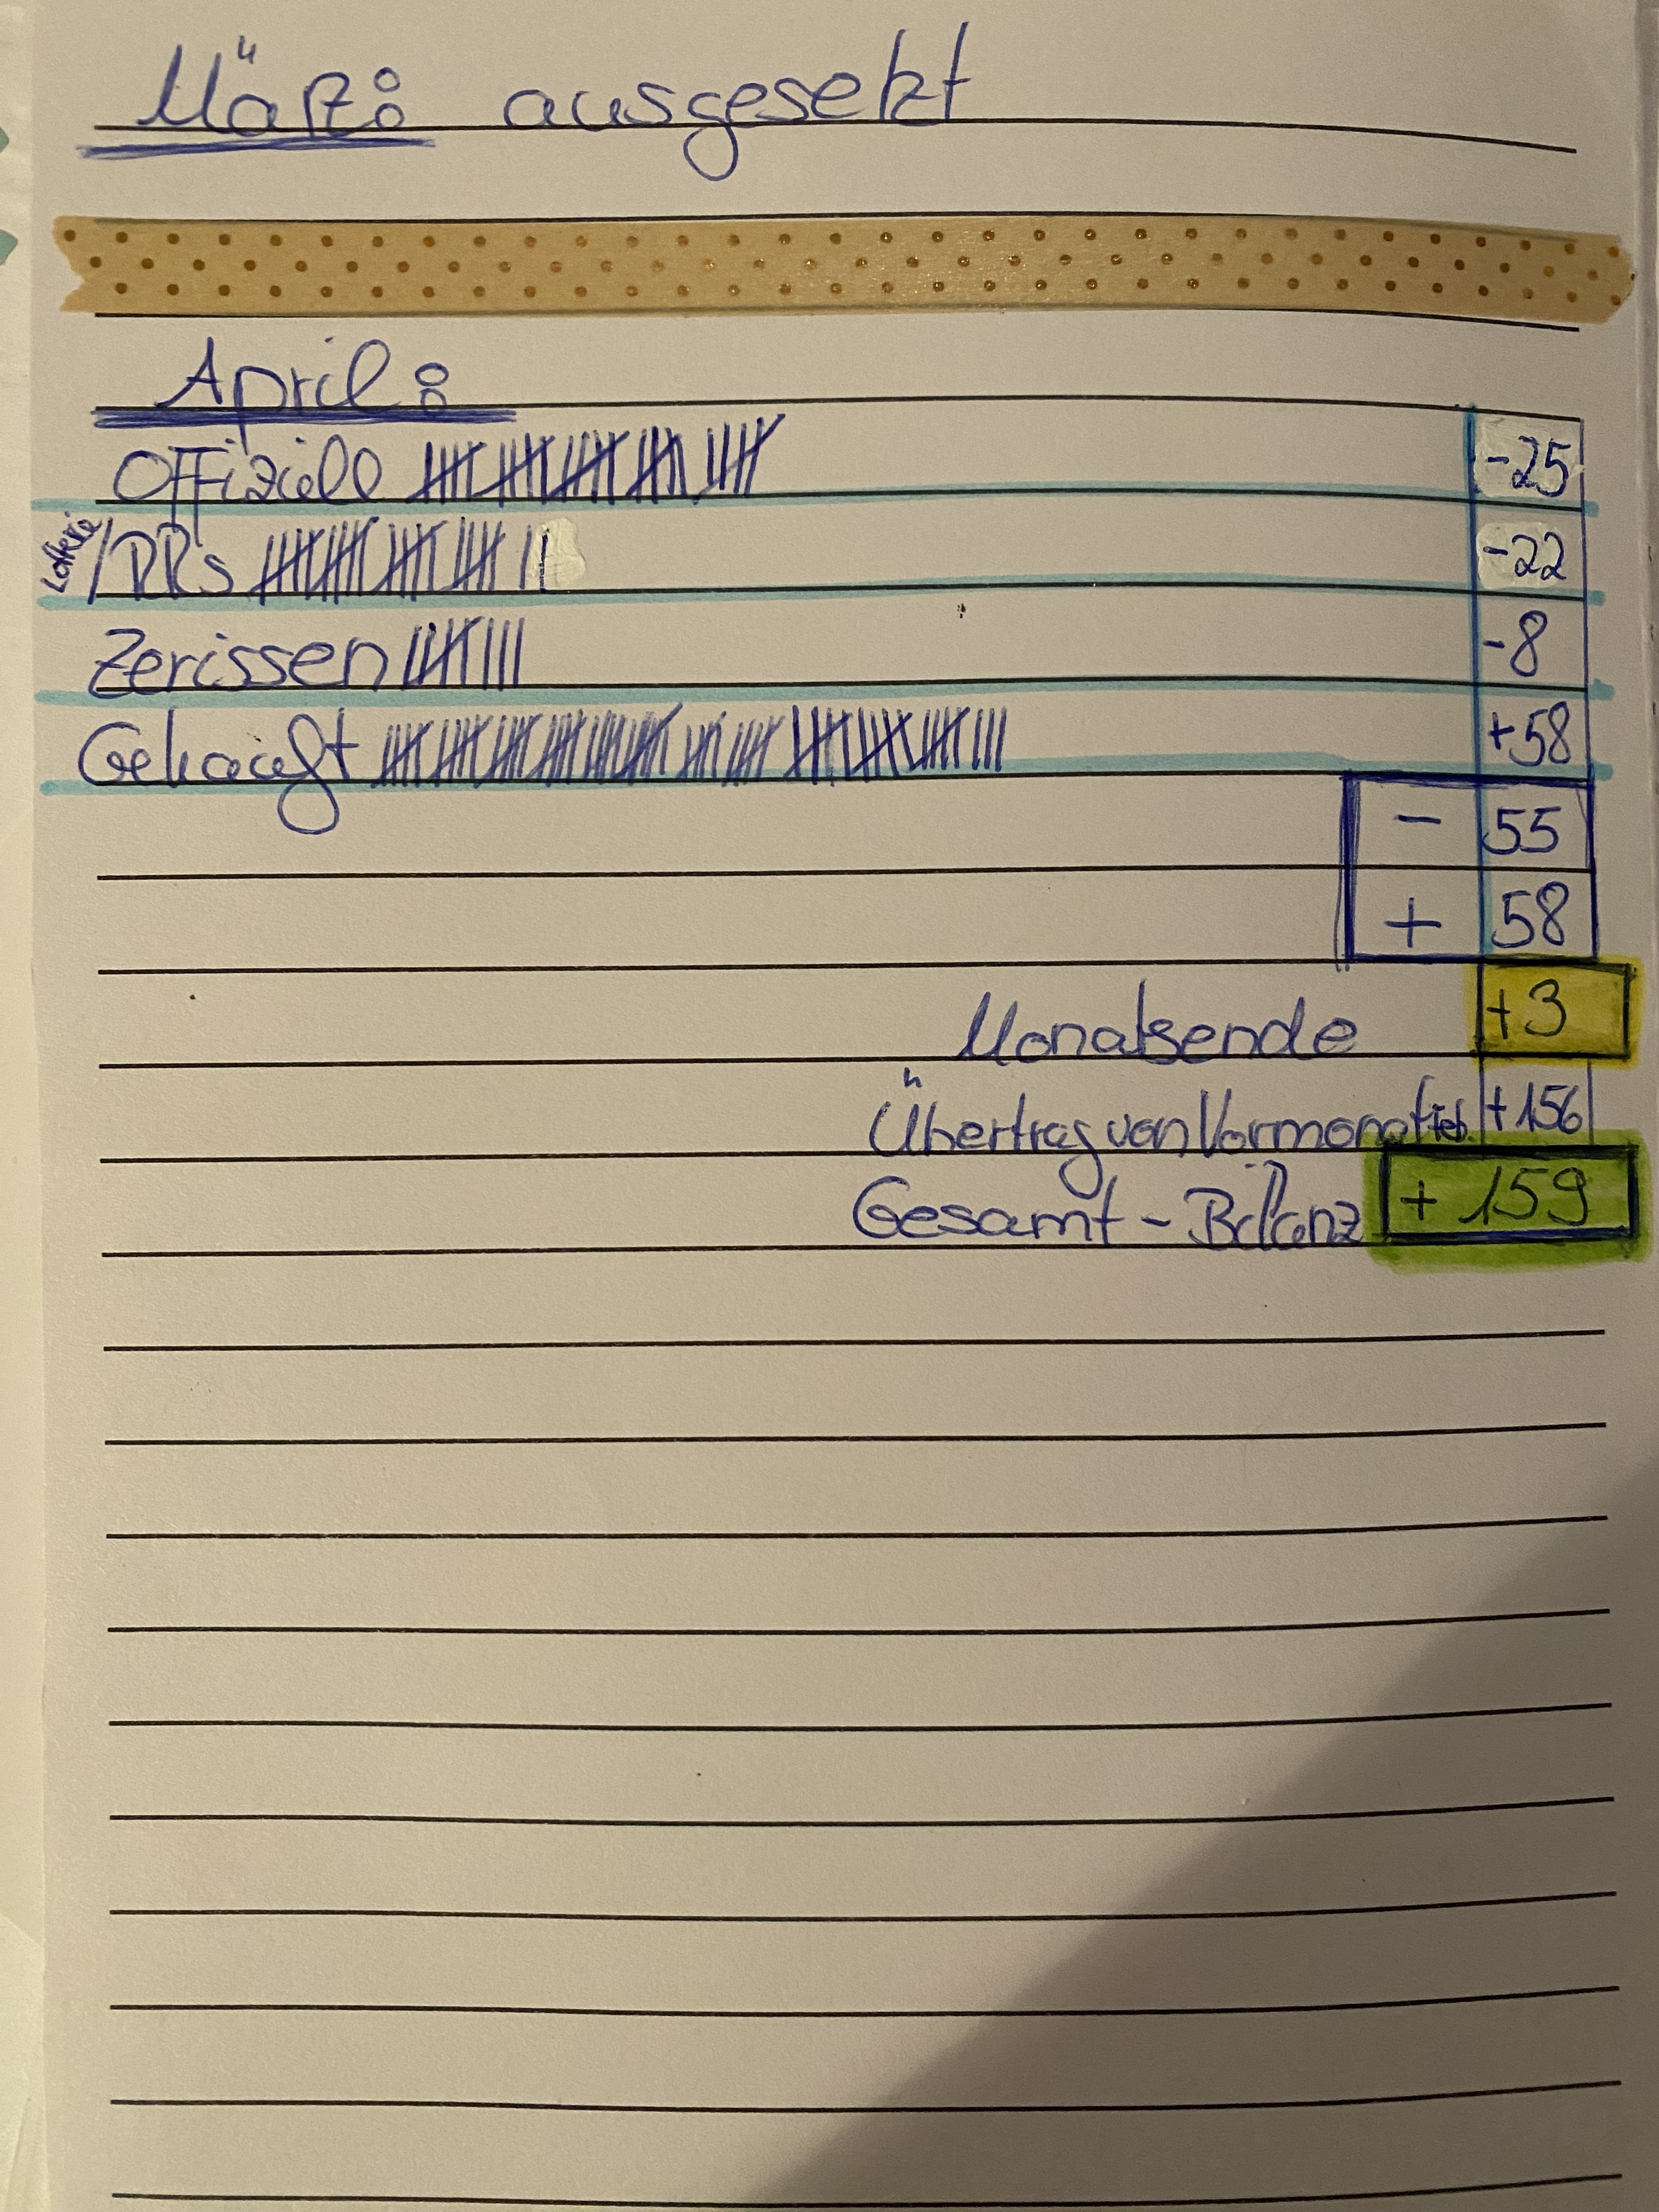 März: ausgesetzt
April:
Offiziell -25
Lotterie/RRs -22
Zerissen -8
Gekauft +58
- 55
+ 58
Monatsende +3
Übertrag von Vormonat Feb. +156
Gesamt-Bilanz + 159